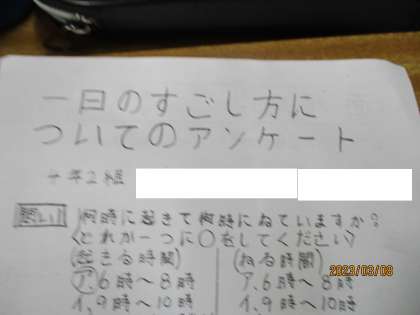 一日のすごし方に
ついてのアンケート
年2組
問い1 何時に起きて何時にねていますか?
(どれか一つに○をしてください)
(起きる時間) (ねる時間)
ア,6時〜8時 ア,6時〜8時
イ,9時〜10時 イ,9時〜10時
2023/03/08